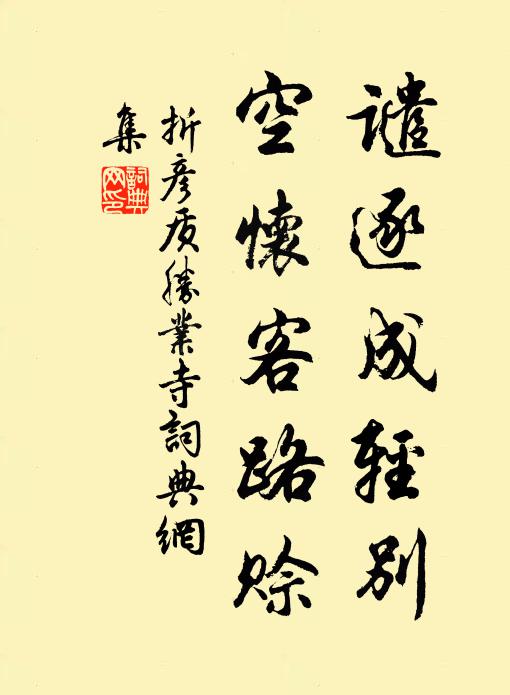 譴逐成輕別
空懷客路賒
折彥质勝業寺詞典網
集
詞典网印